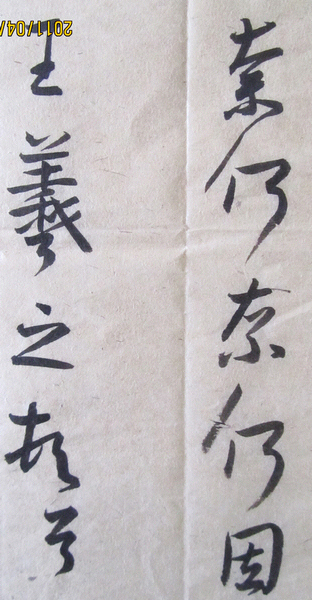 奈何奈何因
王羲之頓首
2011/04/